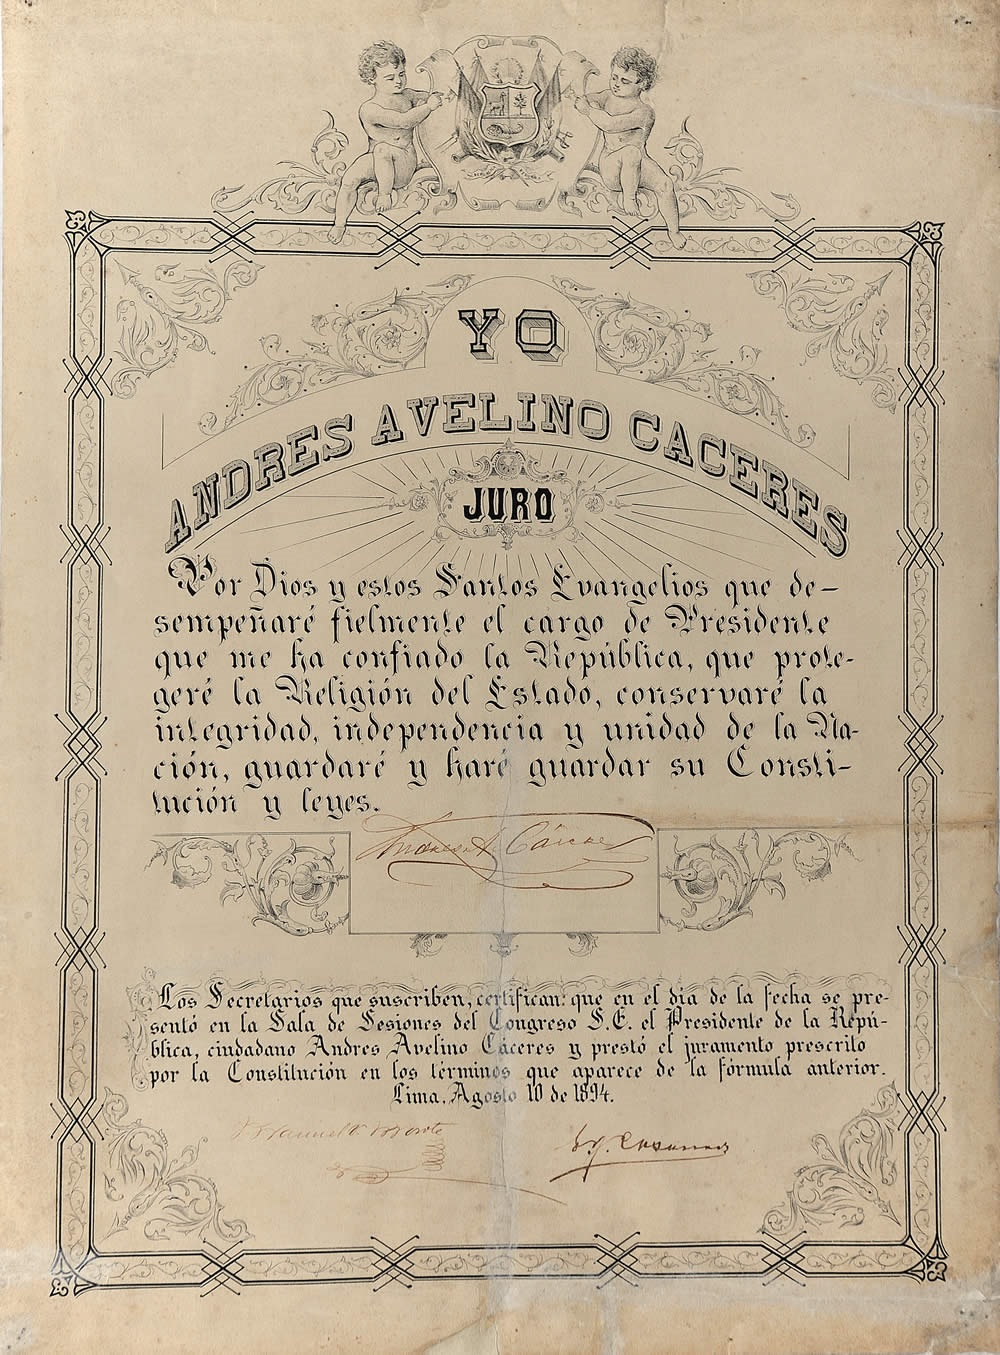 YO
ANDRES AVELINO CACERES
JURO
Por Dios y estos Santos Evangelios que de-
sempeñaré fielmente el cargo de Presidente
que me ha confiado la República, que prote-
geré la Religión del Estado, conservaré la
integridad, independencia y unidad de la Na-
ción, guardaré y haré guardar su Consti-
tución y leyes.
Andres A. Cáceres
Los Secretarios que suscriben, certifican: que en el día de la fecha se pre-
sentó en la Sala de Sesiones del Congreso S.E. el Presidente de la Repú-
blica, ciudadano Andres Avelino Cáceres y prestó el juramento prescrito
por la Constitución en los términos que aparece de la fórmula anterior.
Lima, Agosto 10 de 1894.